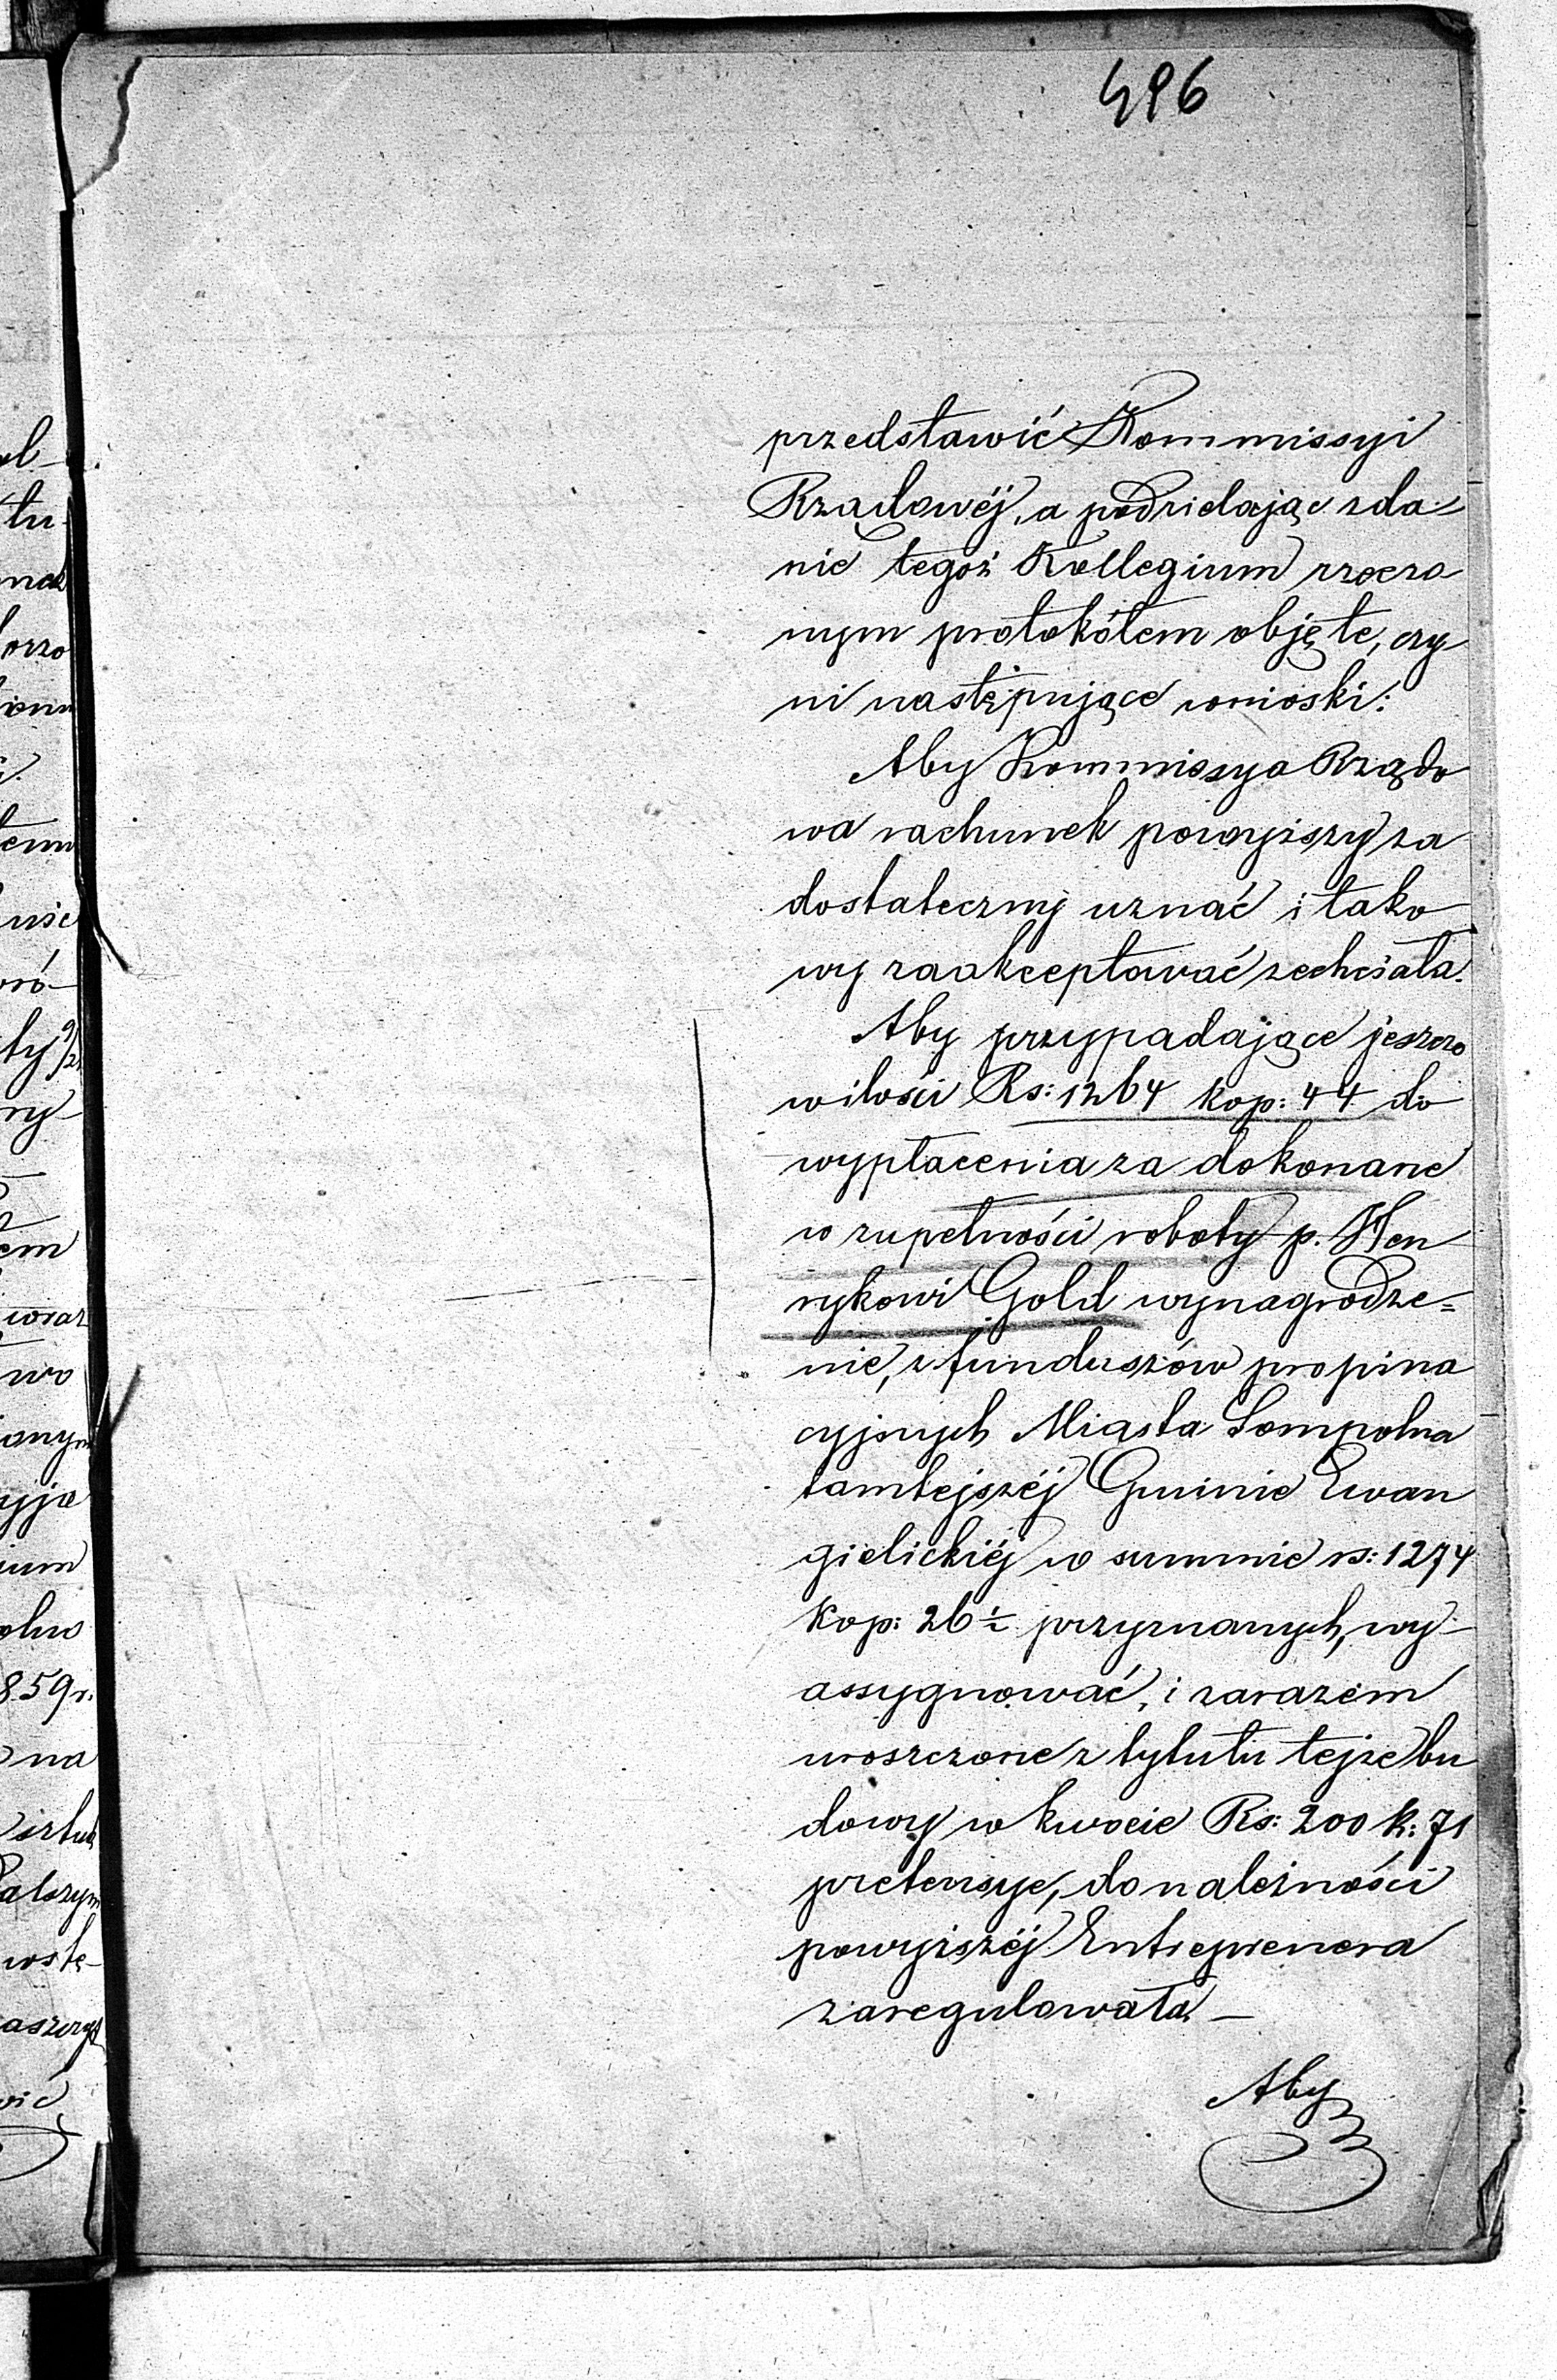 496
przedstawić Kommissyi
Rządowéj, a podzielając zda-
nie tegoż Kollegium rzeczo
nym protokółem objęte, czy
ni następujące wnioski:
Aby Kommissya Rządo
wa rachunek powyższy za
dostateczny uznać i tako
wy zaakceptować zechciała.
Aby przypadające jeszcze
w ilości Rs: 1264 kop: 44 do
wypłacenia za dokonane
w zupełności roboty p. Hen
rykowi Gold wynagrodze=
nie, z funduszów propina
cyjnych Miasta Sompolna
tamtejszéj Gminie Ewan
gielickiéj w summie rs: 1274
kop: 26½ przyznanych, wy-
assygnować, i zarazem
wnoszczone z tytułu tejże bu
dowy w kwocie Rs: 200 k: 71
pretensye, do należności
powyższéj Entreprenera
zaregulowała —
Aby